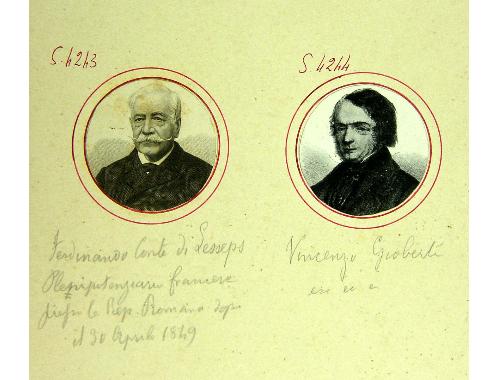 S. 4243
S. 4244
Ferdinando Conte di Lesseps
Plenipotenziario francese
presso la Rep. Romana dopo
il 30 Aprile 1849
Vincenzo Gioberti